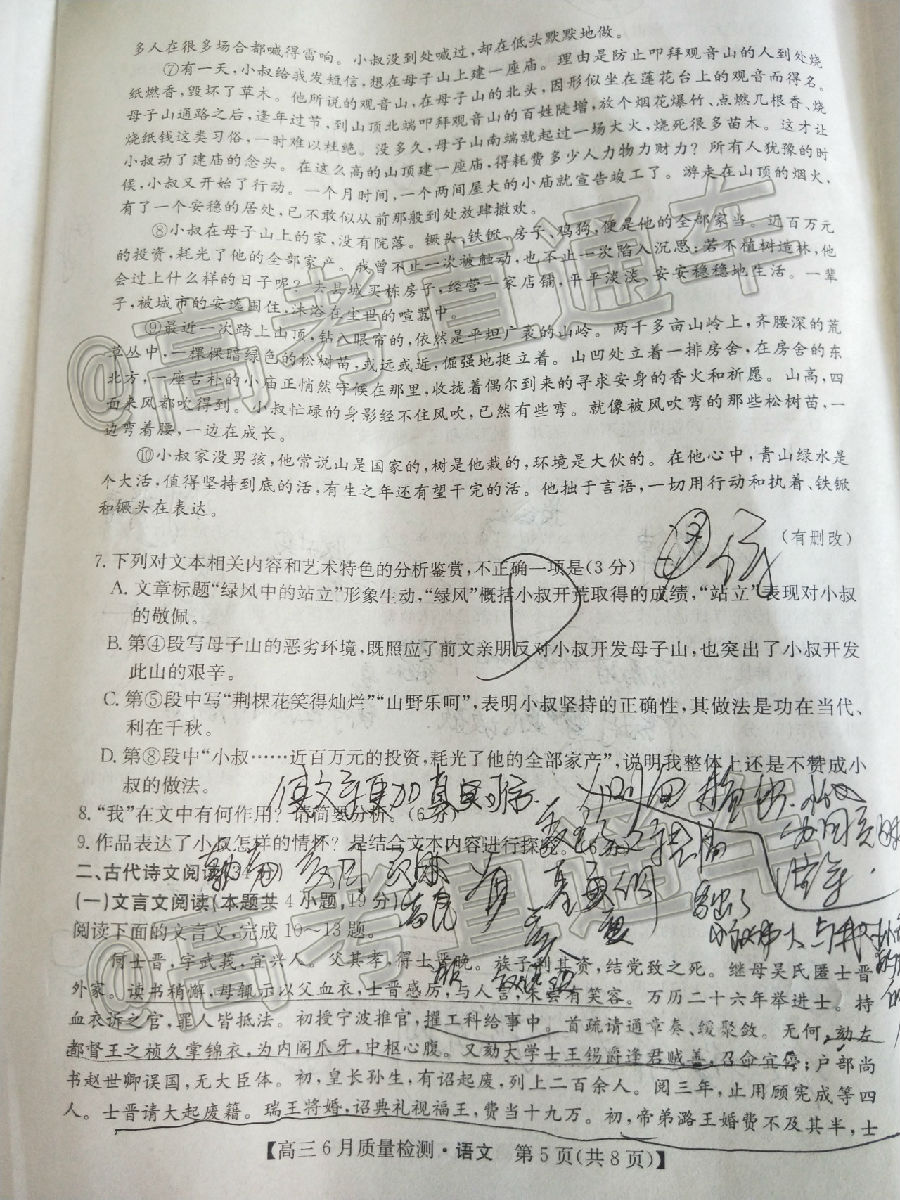 多人在很多场合都喊得富响。小叔没到处喊过,却在低头默默地做。
⑦有一天,小叔给我发短信,想在母子山上建一座庙。理由是防止叩拜观音山的人到处烧
纸燃香,毁坏了草木。他所说的观音山,在母子山的北头,因形似坐在莲花台上的观音而得名。
母子山通路之后,逢年过节,到山顶北端叩拜观音山的百姓陡增,放个烟花爆竹、点燃几根香、烧
烧纸钱这类习俗,一时难以杜绝。没多久,母子山南端就起过一场大火,烧死很多苗木。这才让
小叔动了建庙的念头。在这么高的山顶建一座庙,得耗费多少人力物力财力?所有人犹豫的时
候,小叔又开始了行动。一个月时间,一个两间屋大的小庙就宣告竣工了。游走在山顶的烟火,
有了一个安稳的居处,已不敢似从前那般到处放肆撒欢。
⑧小叔在母子山上的家,没有院落。镢头、铁锨、房子、鸡狗,便是他的全部家当。近百万元
的投资,耗光了他的全部家产。我曾不止一次被触动,也不止一次陷入沉思:若不植树造林,他
会过上什么样的日子呢?去县城买栋房子,经营一家店铺,平平淡淡、安安稳稳地生活。一辈
子,被城市的安逸围住,沐浴在尘世的喧嚣中。
⑨最近一次踏上山顶,钻入眼帘的,依然是平坦广袤的山岭。两千多亩山岭上,齐腰深的荒
草丛中,一棵棵暗绿色的松树苗,或远或近,倔强地挺立着。山凹处立着一排房舍,在房舍的东
北方,一座古朴的小庙正悄然守候在那里,收拢着偶尔到来的寻求安身的香火和祈愿。山高,四
面来风都吹得到。小叔忙碌的身影经不住风吹,已然有些弯。就像被风吹弯的那些松树苗、一
边弯着腰,一边在成长。
⑩小叔家没男孩,他常说山是国家的,树是他栽的,环境是大伙的。在他心中,青山绿水是
个大活,值得坚持到底的活,有生之年还有望干完的活。他拙于言语,一切用行动和执着、铁锨
和镢头在表达。
(有删改)
7.下列对文本相关内容和艺术特色的分析鉴赏,不正确一项是(3分)
D
A.文章标题“绿风中的站立”形象生动,“绿风”概括小叔开荒取得的成绩,“站立”表现对小叔
的敬佩。
B.第④段写母子山的恶劣环境,既照应了前文亲朋反对小叔开发母子山,也突出了小叔开发
此山的艰辛。
C.第⑤段中写“荆棵花笑得灿烂”“山野乐呵”,表明小叔坚持的正确性,其做法是功在当代、
利在千秋。
D.第⑧段中“小叔……近百万元的投资,耗光了他的全部家产”,说明我整体上还是不赞成小
叔的做法。
使文章更加真实
8.“我”在文中有何作用?请简要分析。(6分)
9.作品表达了小叔怎样的情怀?是结合文本内容进行探究。(6分)
二、古代诗文阅读(34分)
(一)文言文阅读(本题共4小题,19分)
阅读下面的文言文,完成10~13题。
何士晋,字武莪,宜兴人。父其孝,得士晋晚。族子利其资,结党致之死。继母吴氏匿士晋
外家。读书稍懈,母辄示以父血衣,士晋感厉,与人言,未尝有笑容。万历二十六年举进士。持
血衣诉之官,罪人皆抵法。初授宁波推官,擢工科给事中。首疏请通章奏、缓聚敛。无何,劾左
都督王之桢久掌锦衣,为内阁爪牙,中枢心腹。又劾大学士王锡爵逢君贼善,召命宜停;户部尚
书赵世卿误国,无大臣体。初,皇长孙生,有诏起废,列上二百余人。阅三年,止用顾宪成等四
人。士晋请大起废籍。瑞王将婚,诏典礼视福王,费当十九万。初,帝弟潞王婚费不及其半,士
【高三6月质量检测·语文 第5页(共8页)】
@高考直通车
@高考直通车
@高考直通车